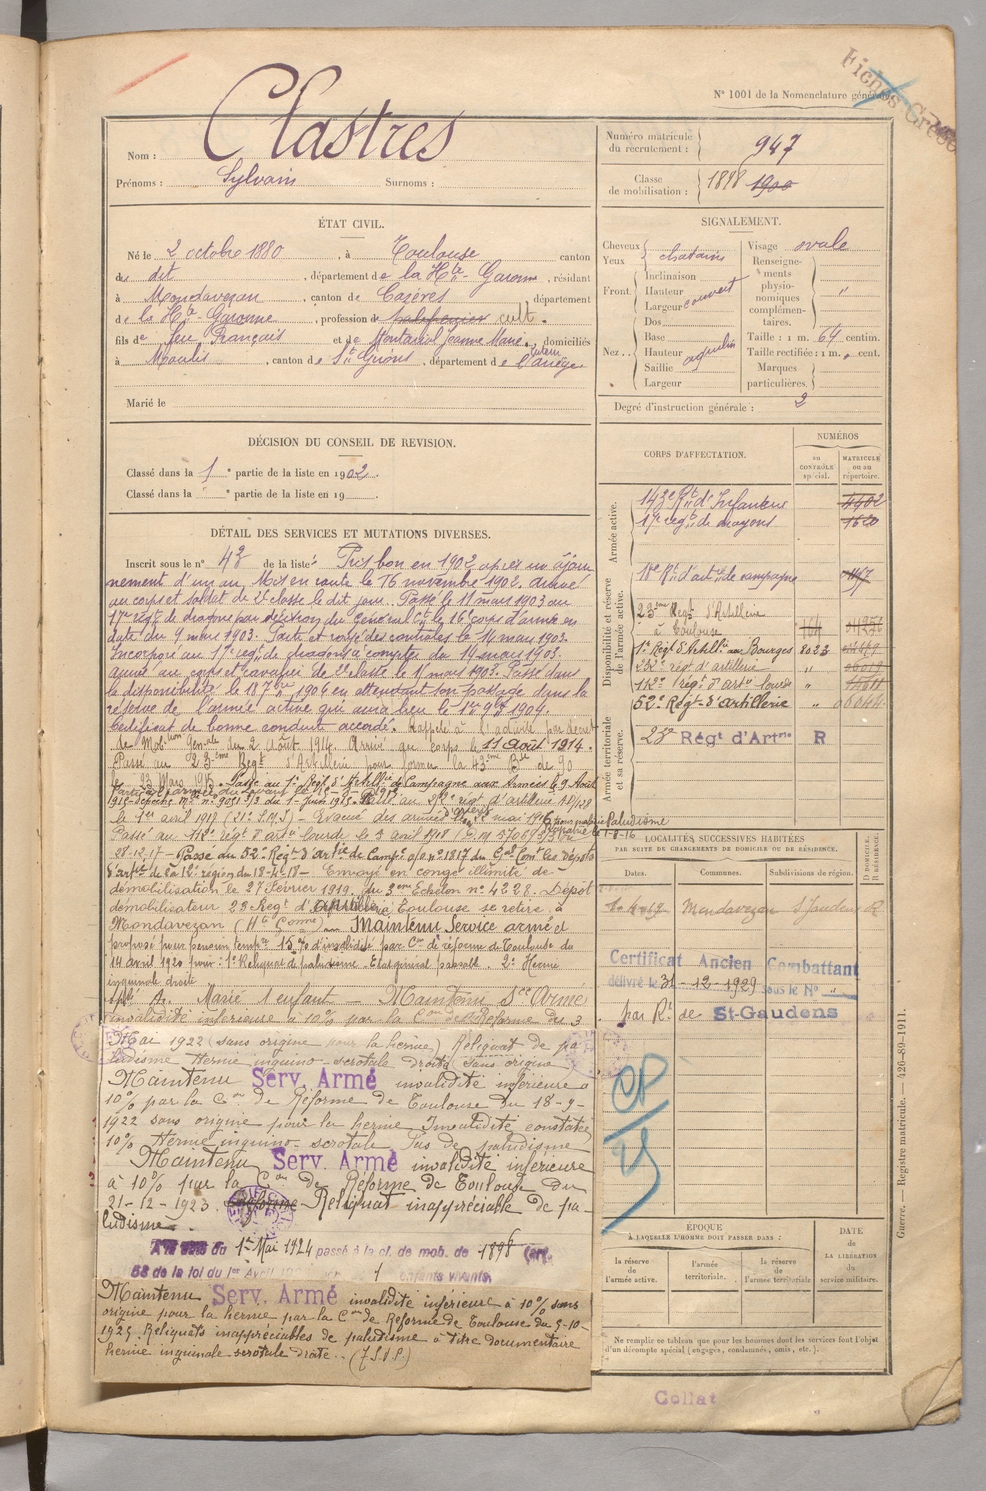 Fiches
N° 1001 de la Nomenclature générale
Clastres
Nom :
Prénoms : Sylvain Surnoms :
Numéro matricule du recrutement : 947
Classe de mobilisation : 1898 1900
ÉTAT CIVIL.
Né le 2 octobre 1880, à Toulouse canton
de dit, département de la Hte-Garonne, résidant
à Mondavezan, canton de Cazères département
de la Hte-Garonne, profession de cult.
fils de feu François et de Jeanne Marie, domiciliés
à Moulis, canton de St Girons, département de l'Ariège
Marié le
SIGNALEMENT.
Cheveux
Yeux
chatains
Front.
Inclinaison
Hauteur
Largeur
couvert
Nez..
Dos
Base
Hauteur
Saillie
Largeur
aquilin
Visage ovale
Renseignements physionomiques complémentaires.
"
Taille : 1 m. 64 centim.
Taille rectifiée : 1 m. " cent.
Marques particulières.
Degré d'instruction générale : 2
DÉCISION DU CONSEIL DE REVISION.
Classé dans la 1 e partie de la liste en 1902.
Classé dans la e partie de la liste en 19
DÉTAIL DES SERVICES ET MUTATIONS DIVERSES.
Inscrit sous le n° 42 de la liste. Pris bon en 1902 après un ajour
nement d'un an. Mis en route le 16 novembre 1902. Arrivé
au corps et soldat de 2e classe le dit jour. Passé le 11 mars 1903 au
17e régt de dragons par décision du Général Ct le 16e corps d'armée en
date du 9 mars 1903. Parti et rayé des contrôles le 14 mars 1903.
Incorporé au 17e régt de dragons à compter du 14 mars 1903.
arrivé au corps et cavalier de 2e classe le mars 1903. Passé dans
la disponibilité le 1904 en attendant son passage dans la
réserve de l'armée active qui aura lieu le 1er 9bre 1904.
Certificat de bonne conduite accordé. Rappelé à l'activité par décret
de Mobtion Génale du 2 Août 1914. Arrivé au corps le 11 août 1914.
Passé au 23ème Régt d'Artillerie pour former la 43ème Bie de 90
le 23 Mars 1915. Passé au 1er Régt d'Artillie de Campagne aux Armées le 9 Août
1915 Dépêche Mlle n° 9051 3/3 du 1er Juin 1915. Passé au 2 régt d'artillerie
le 1er avril 1917 Evacué des armées d'Orient mai 1916 pour paludisme
Passé au 112e régt d'artie lourde le 5 avril 1918
28-12-17 - Passé au 52e Régt d'artie de Campe o/o n° 1817 du Gal Comt les Dépôts
d'artie de la 12e région du 18-4-18 - Envoyé en congé illimité de
démobilisation le 27 Février 1919, du 3eme Echelon n° 4228. Dépôt
démobilisateur 23e Régt d'Artillerie, Toulouse se retire à
Mondavezan (Hte Gonne) Maintenu Service armé et
proposé pour pension tempre 15% d'invalidité par Con de réforme de Toulouse du
14 avril 1920 pour : 1° Reliquat de paludisme. Etat général passable. 2° Hernie
inguinale droite
Marié 1 enfant - Maintenu Sce Armé
invalidité inférieure à 10% par la Con de Réforme des 3
Mai 1922 (sans origine pour la hernie) Reliquat de pa
ludisme Hernie inguino-scrotale droite sans origine
Maintenu Serv. Armé invalidité inférieure à
10% par la Con de Réforme de Toulouse du 18-9-
1922 sans origine pour la hernie Invalidité constatée
10% Hernie inguino-scrotale Pas de paludisme
Maintenu Serv. Armé invalidité inférieure
à 10% par la Con de Réforme de Toulouse du
21-12-1923. Reliquat inappréciable de pa-
ludisme
du 1er Mai 1924 passé à la cl. de mob. de 1898 (art.
58 de la loi du 1er Avril 1 enfants vivants.
Maintenu Serv. Armé invalidité inférieure à 10% sans
origine pour la hernie par la Con de Réforme de Toulouse du 5-10
1925. Reliquats inappréciables de paludisme à titre documentaire
hernie inguinale scrotale droite.
CORPS D'AFFECTATION.
NUMÉROS
au CONTRÔLE spécial.
MATRICULE ou au répertoire.
Armée active.
143e Rt d'Infanterie 4402
17e régt de dragons 1620
Disponibilité et réserve de l'armée active.
18e Rt d'artie de campagne
23ème Régt d'Artillerie
à Toulouse 164
1er Régt d'Artillie au Bourges 2023
régt d'artillerie "
112e régt d'artie lourde "
52e Régt d'artillerie "
Armée territoriale et sa réserve.
23e Régt d'Artrie R
LOCALITÉS SUCCESSIVES HABITÉES
PAR SUITE DE CHANGEMENTS DE DOMICILE OU DE RÉSIDENCE.
Dates.
Communes.
Subdivisions de région.
D DOMICILE. R RÉSIDENCE.
Mondavezan St Gaudens R
Certificat Ancien Combattant
délivré le 31-12-1929 sous le N° "
par Rt de St-Gaudens
ÉPOQUE
À LAQUELLE L'HOMME DOIT PASSER DANS :
la réserve de l'armée active.
l'armée territoriale.
la réserve de l'armée territoriale
DATE de LA LIBÉRATION du service militaire.
Ne remplir ce tableau que pour les hommes dont les services font l'objet
d'un décompte spécial (engagés, condamnés, omis, etc.).
Guerre. — Registre matricule. — 426-89-1911.
Collat